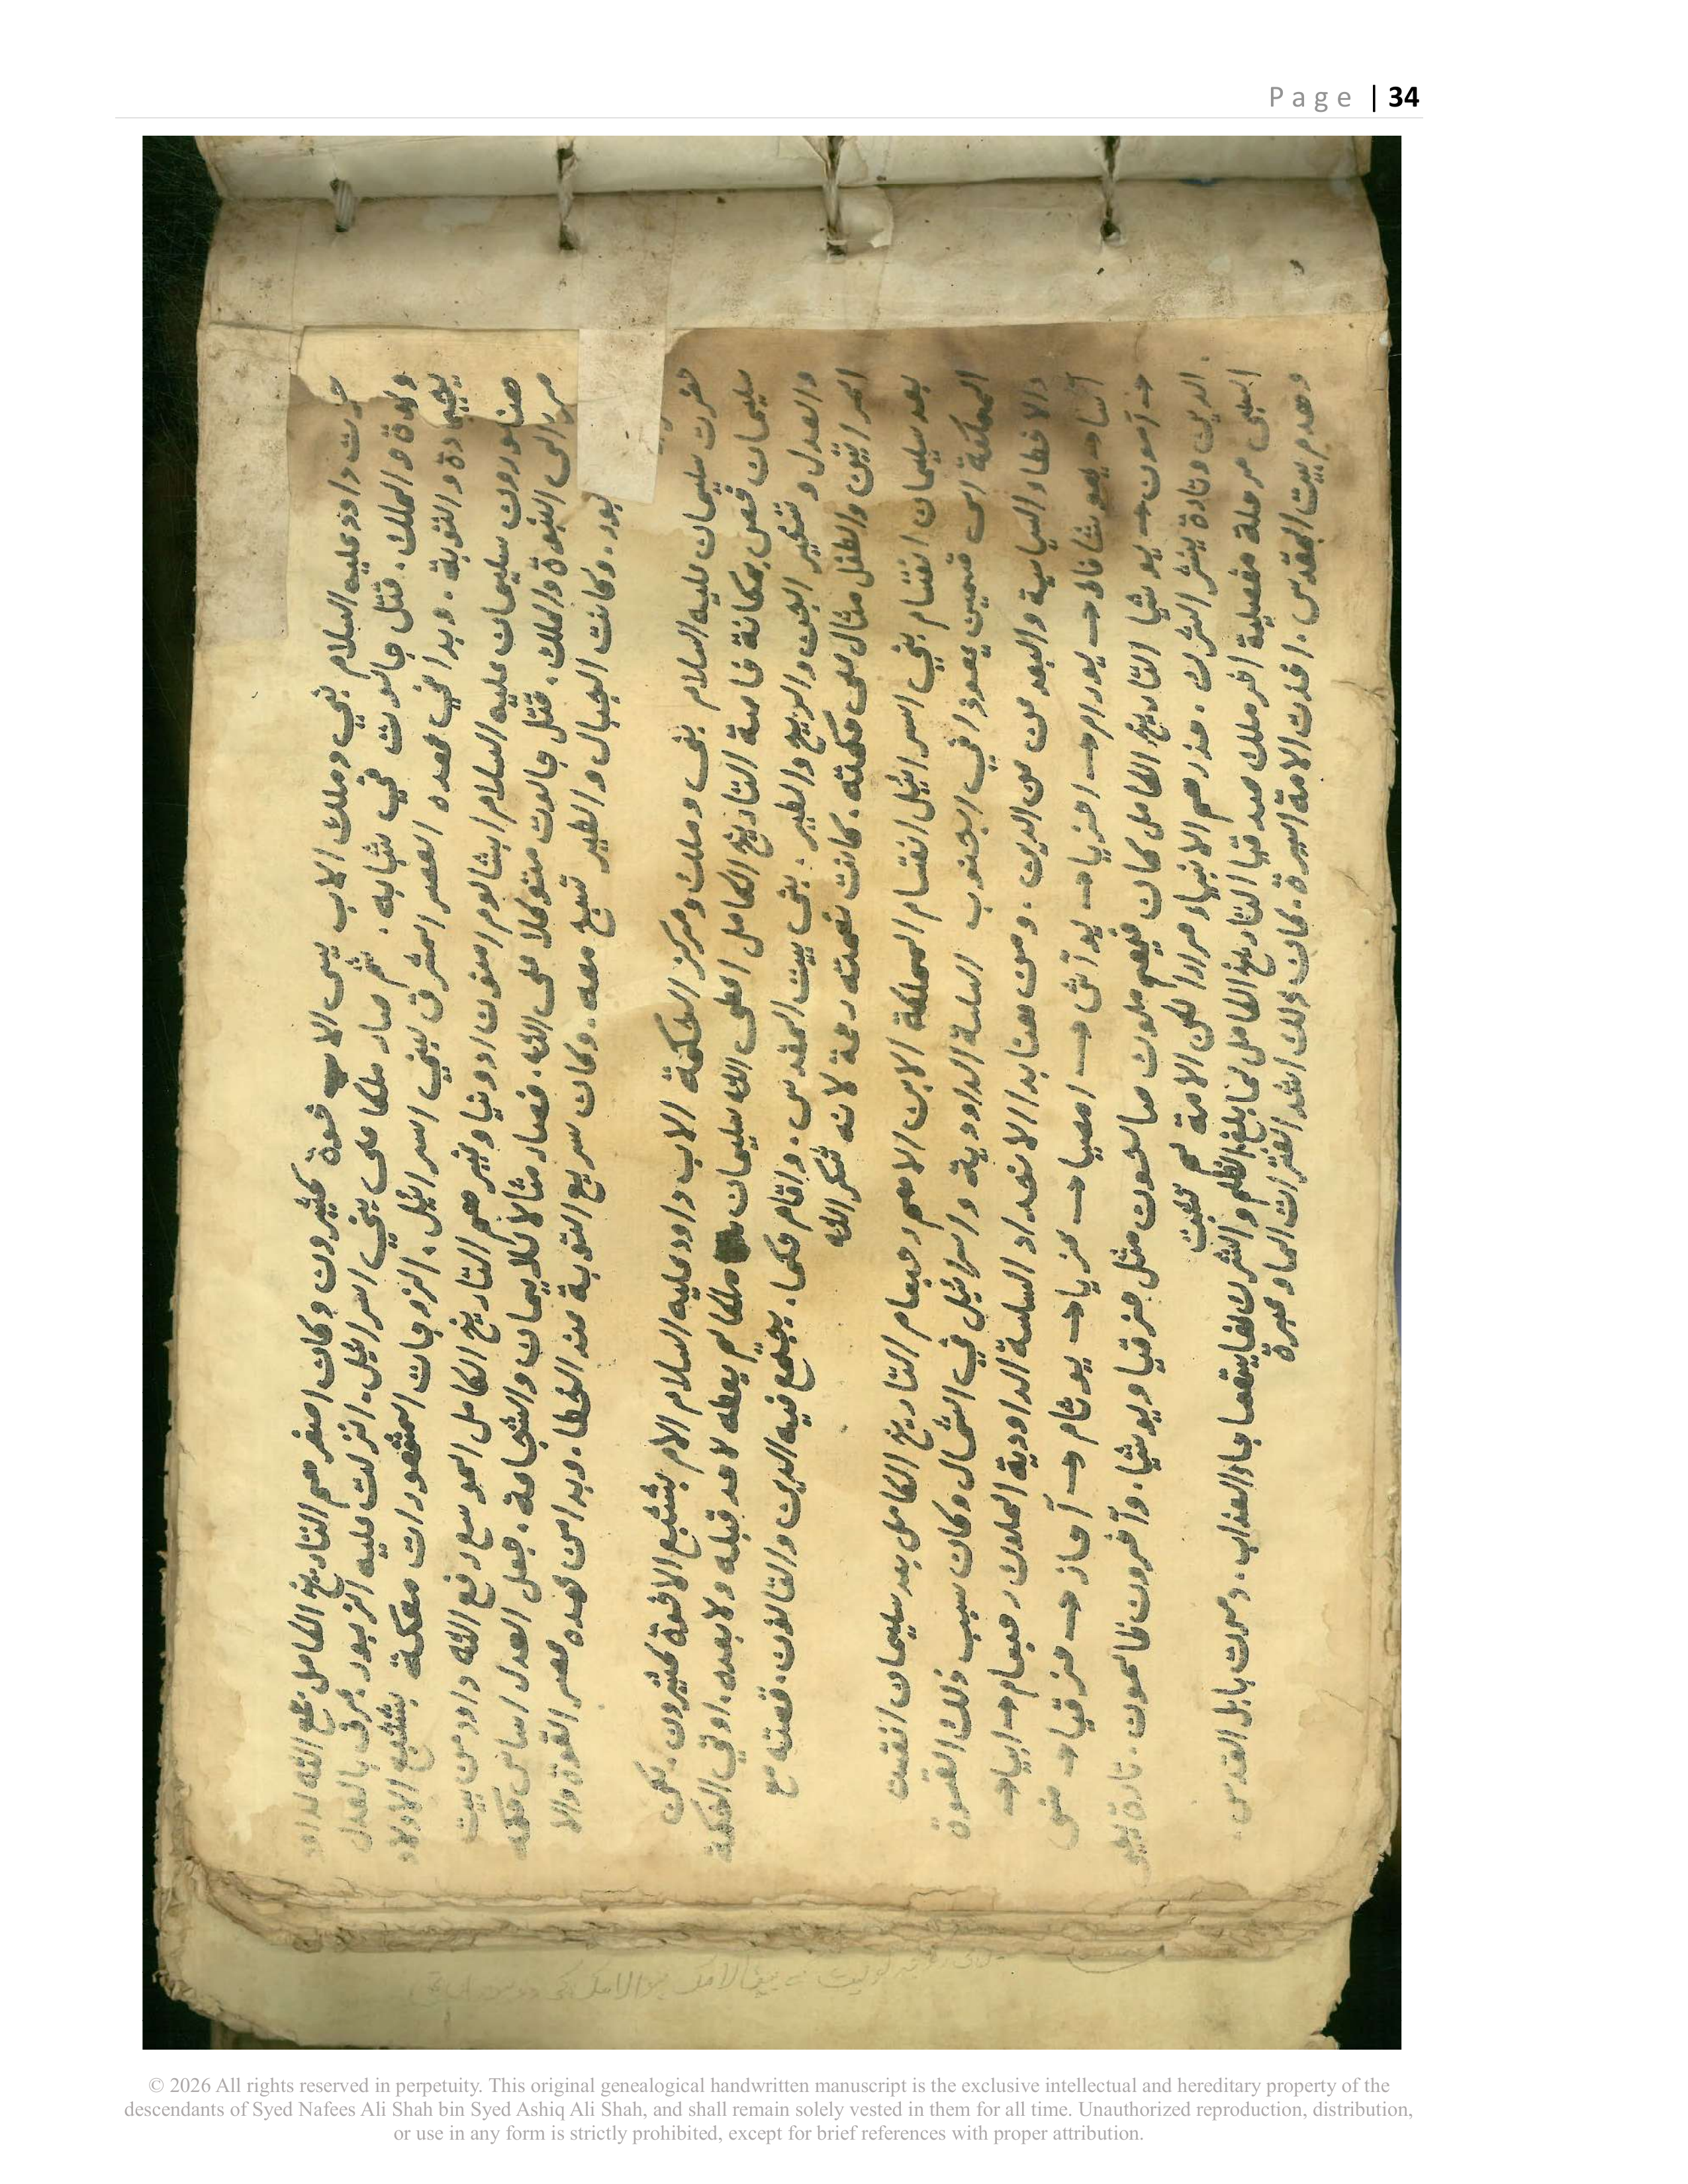 Page | 34
داود عليه السلام نبي وملك الاب يسى الاب خوة كثيرون وكان اصغرهم التاريخ الكامل جمع الله لداود
والملك. قتل جالوت في شبابه. ثم صار ملكا على بني اسرائيل. انزلت عليه الزبور. عرف بالعدل
والتوبة. وبدا في عهده العصر المشرق لبني اسرائيل. الزوجات المشهورات معكة بتشبع الاولاد
سليمان عليه السلام ابشالوم امنون ادونيا وغيرهم التاريخ الكامل الموسع رفع الله داود من بيت
الى النبوة والملك. قتل جالوت متوكلا على الله. فصار مثالا للايمان والشجاعة. جعل العدل اساس حكمه
وكانت الجبال والطير تسبح معه. وكان سريع التوبة عند الخطا. وبدا من عهده عصر القوة والا
حضرت سليمان عليه السلام نبى وملك ومركز الحكمة الاب داود عليه السلام الام بتشبع الاخوة كثيرون. لكن
سليمان خص بمكانة خاصة التاريخ الكامل اعطى الله سليمان ملكا لم يعطه لاحد قبله ولا بعده. اوتي الحكمة
والعدل وتسخير الجن والريح والطير. بنى بيت المقدس. واقام حكما. يجمع فيه الدين والقانون. قصته مع
المراتين والطفل مثال على حكمته. كانت نعمته رحمة لانه شكر الله
بعد سليمان انقسام بني اسرائيل انقسام المملكة الابن الاهم رحبعام التاريخ الكامل بعد سليمان انقسمت
المملكة الى قسمين يهوذا في الجنوب السلسة الداودية واسرائيل في الشمال وكان سبب ذلك القسوة
والاخطاء السياسية والبعد عن الدين. ومن هنا بدا الانحدار السلسة الداودية الملوك رحبعام → ابيا →
آسا → يهوشافاط → يورام → اخزيا → يوآش → امصيا → عزيا → يوثام → آحاز → حزقيا → منسى
→ آمون → يوشيا التاريخ الكامل كان فيهم ملوك صالحون مثل حزقيا ويوشيا. وآخرون ظالمون. تارة يحيى
الدين وتارة ينشر الشرك. حذرهم الانبياء مرارا لكن الامة لم تثبت
السبى مرحلة مفصلية اخر ملك صدقيا التاريخ الكامل لما بلغ الظلم والشرك جاء العذاب. دمرت بابل القدس.
وهدم بيت المقدس. اخذت الامة اسيرة. كان ذلك اشد الفترات وعبرة
© 2026 All rights reserved in perpetuity. This original genealogical handwritten manuscript is the exclusive intellectual and hereditary property of the
descendants of Syed Nafees Ali Shah bin Syed Ashiq Ali Shah, and shall remain solely vested in them for all time. Unauthorized reproduction, distribution,
or use in any form is strictly prohibited, except for brief references with proper attribution.